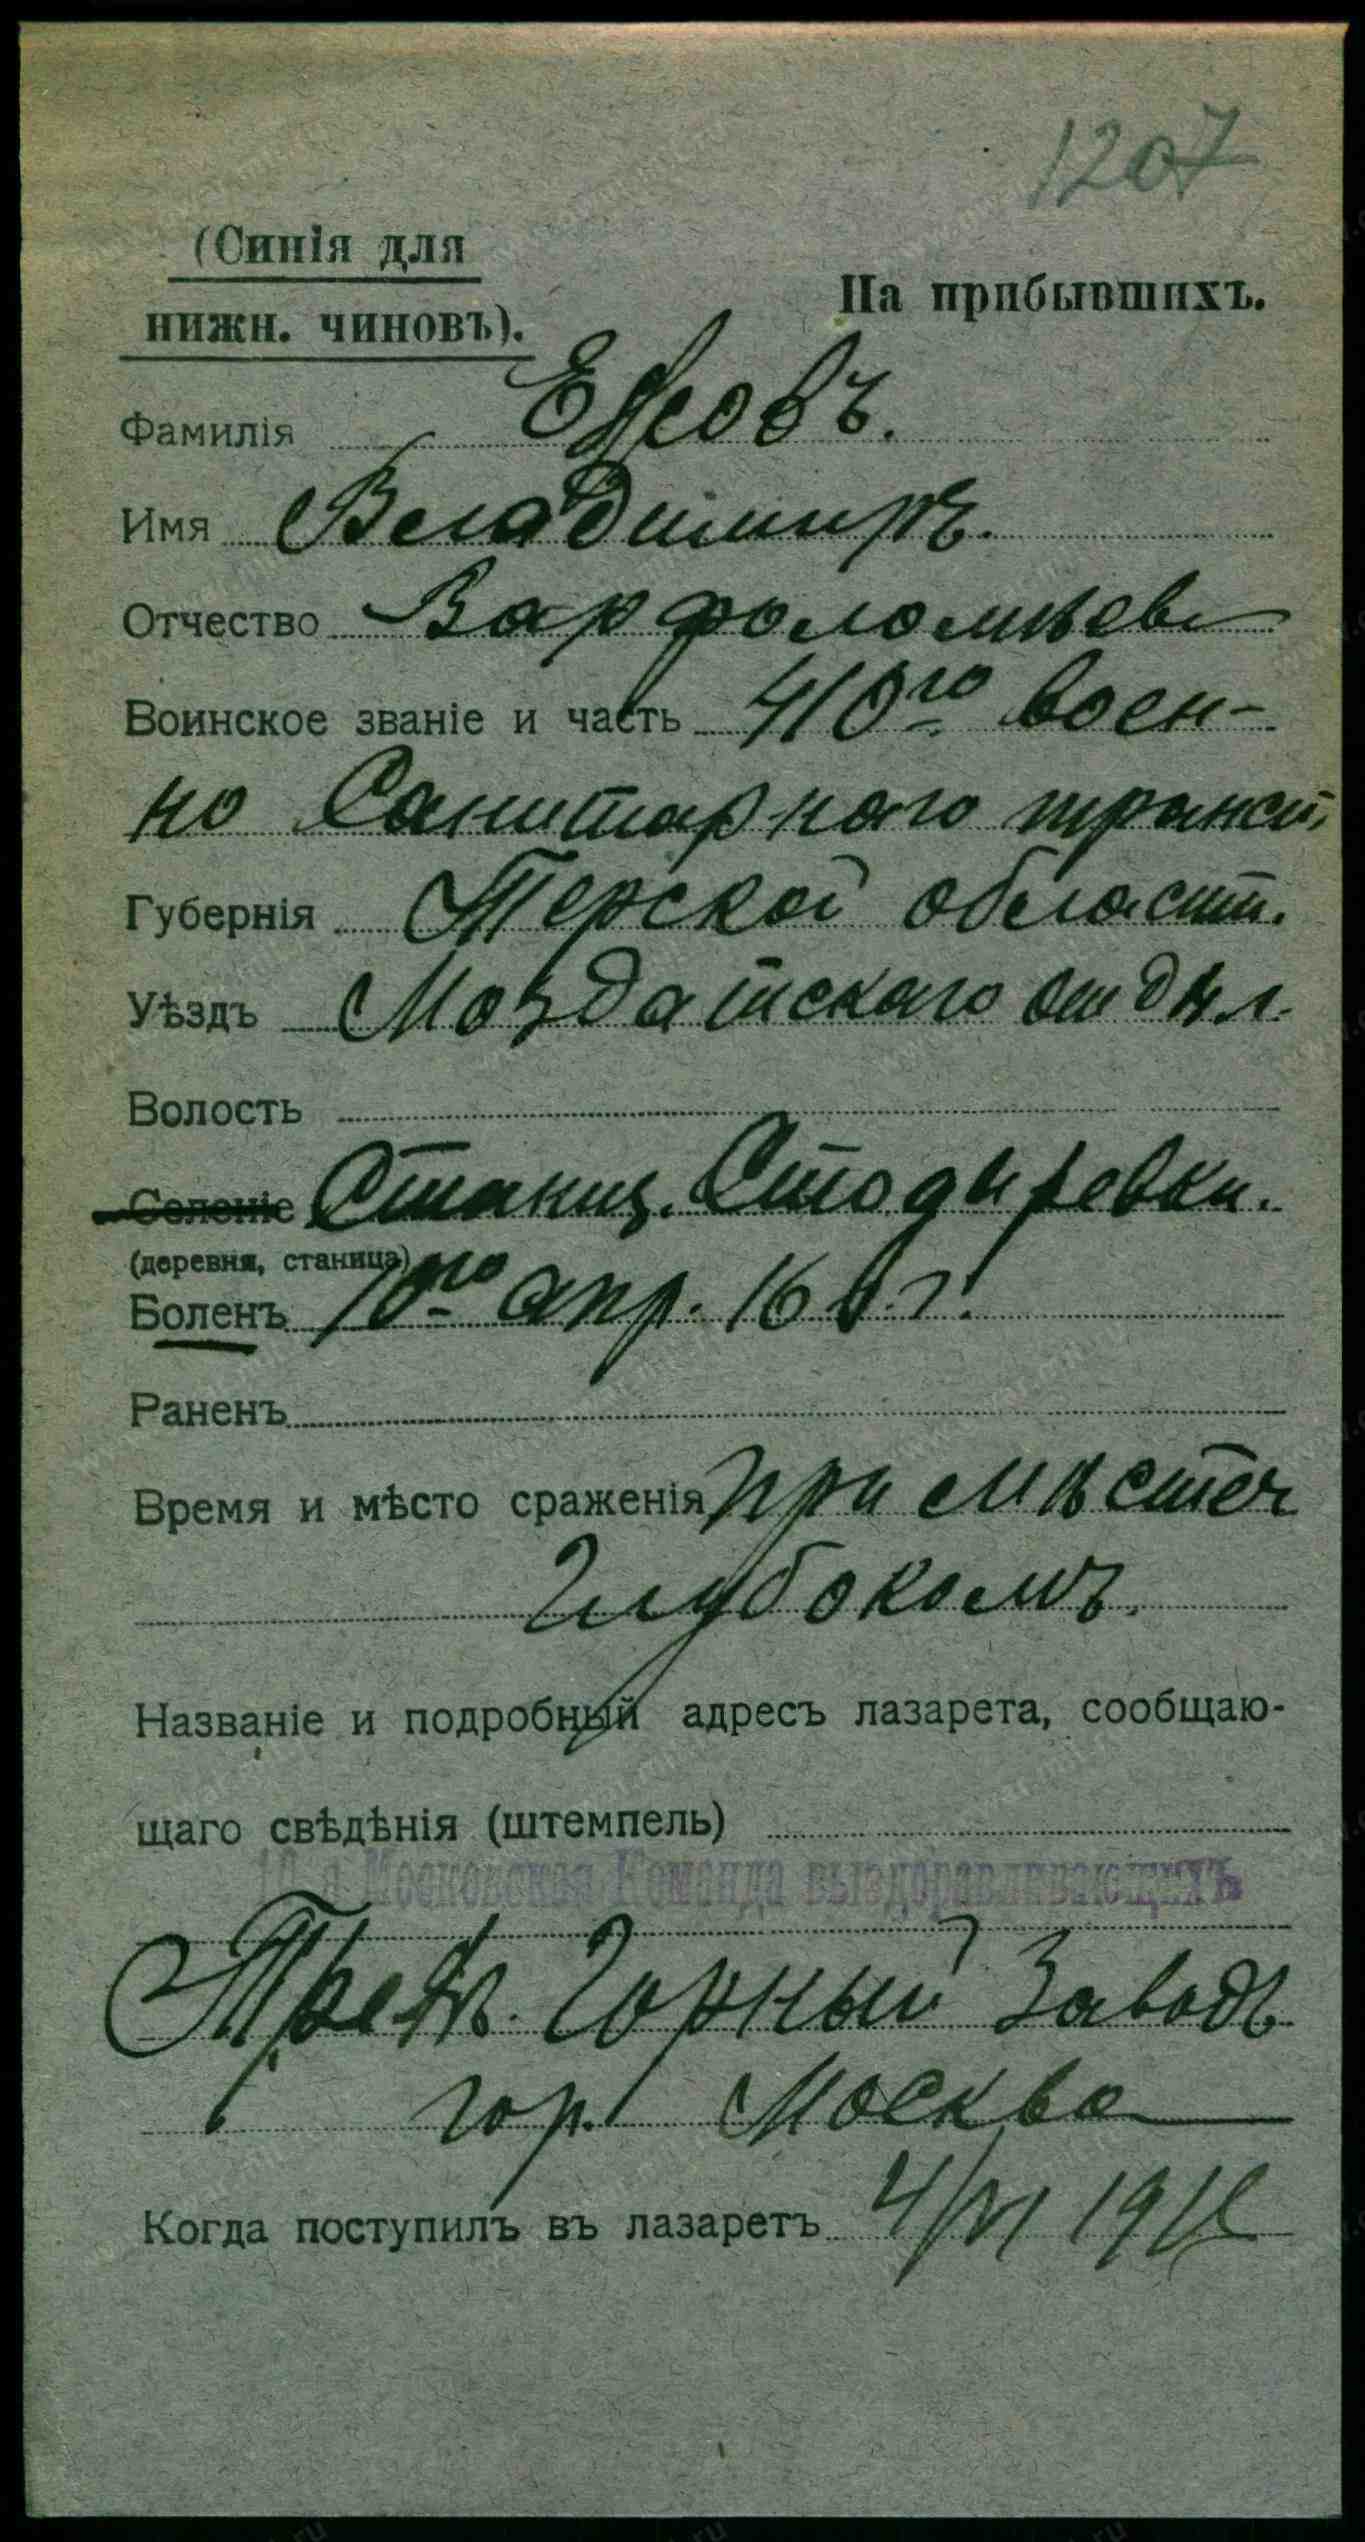 1207
(Синія для
нижн. чиновъ).
На прибывшихъ.
Фамилія Ежовъ.
Имя Владимиръ.
Отчество Варфоломѣев
Воинское званіе и часть 410го воен-
но Санитарного трансп.
Губернія Терской област.
Уѣздъ Моздатскаго отдѣл.
Волость
Селеніе Станиц. Стодыревки.
(деревня, станица)
Боленъ 10го апр. 16 г.
Раненъ
Время и мѣсто сраженія при мѣстеч
Глубокомъ.
Названіе и подробный адресъ лазарета, сообщаю-
щаго свѣдѣнія (штемпель)
10-я Московская Команда выздоравливающихъ
Горный Заводъ
гор. Москва
Когда поступилъ въ лазаретъ 4/VI 1916